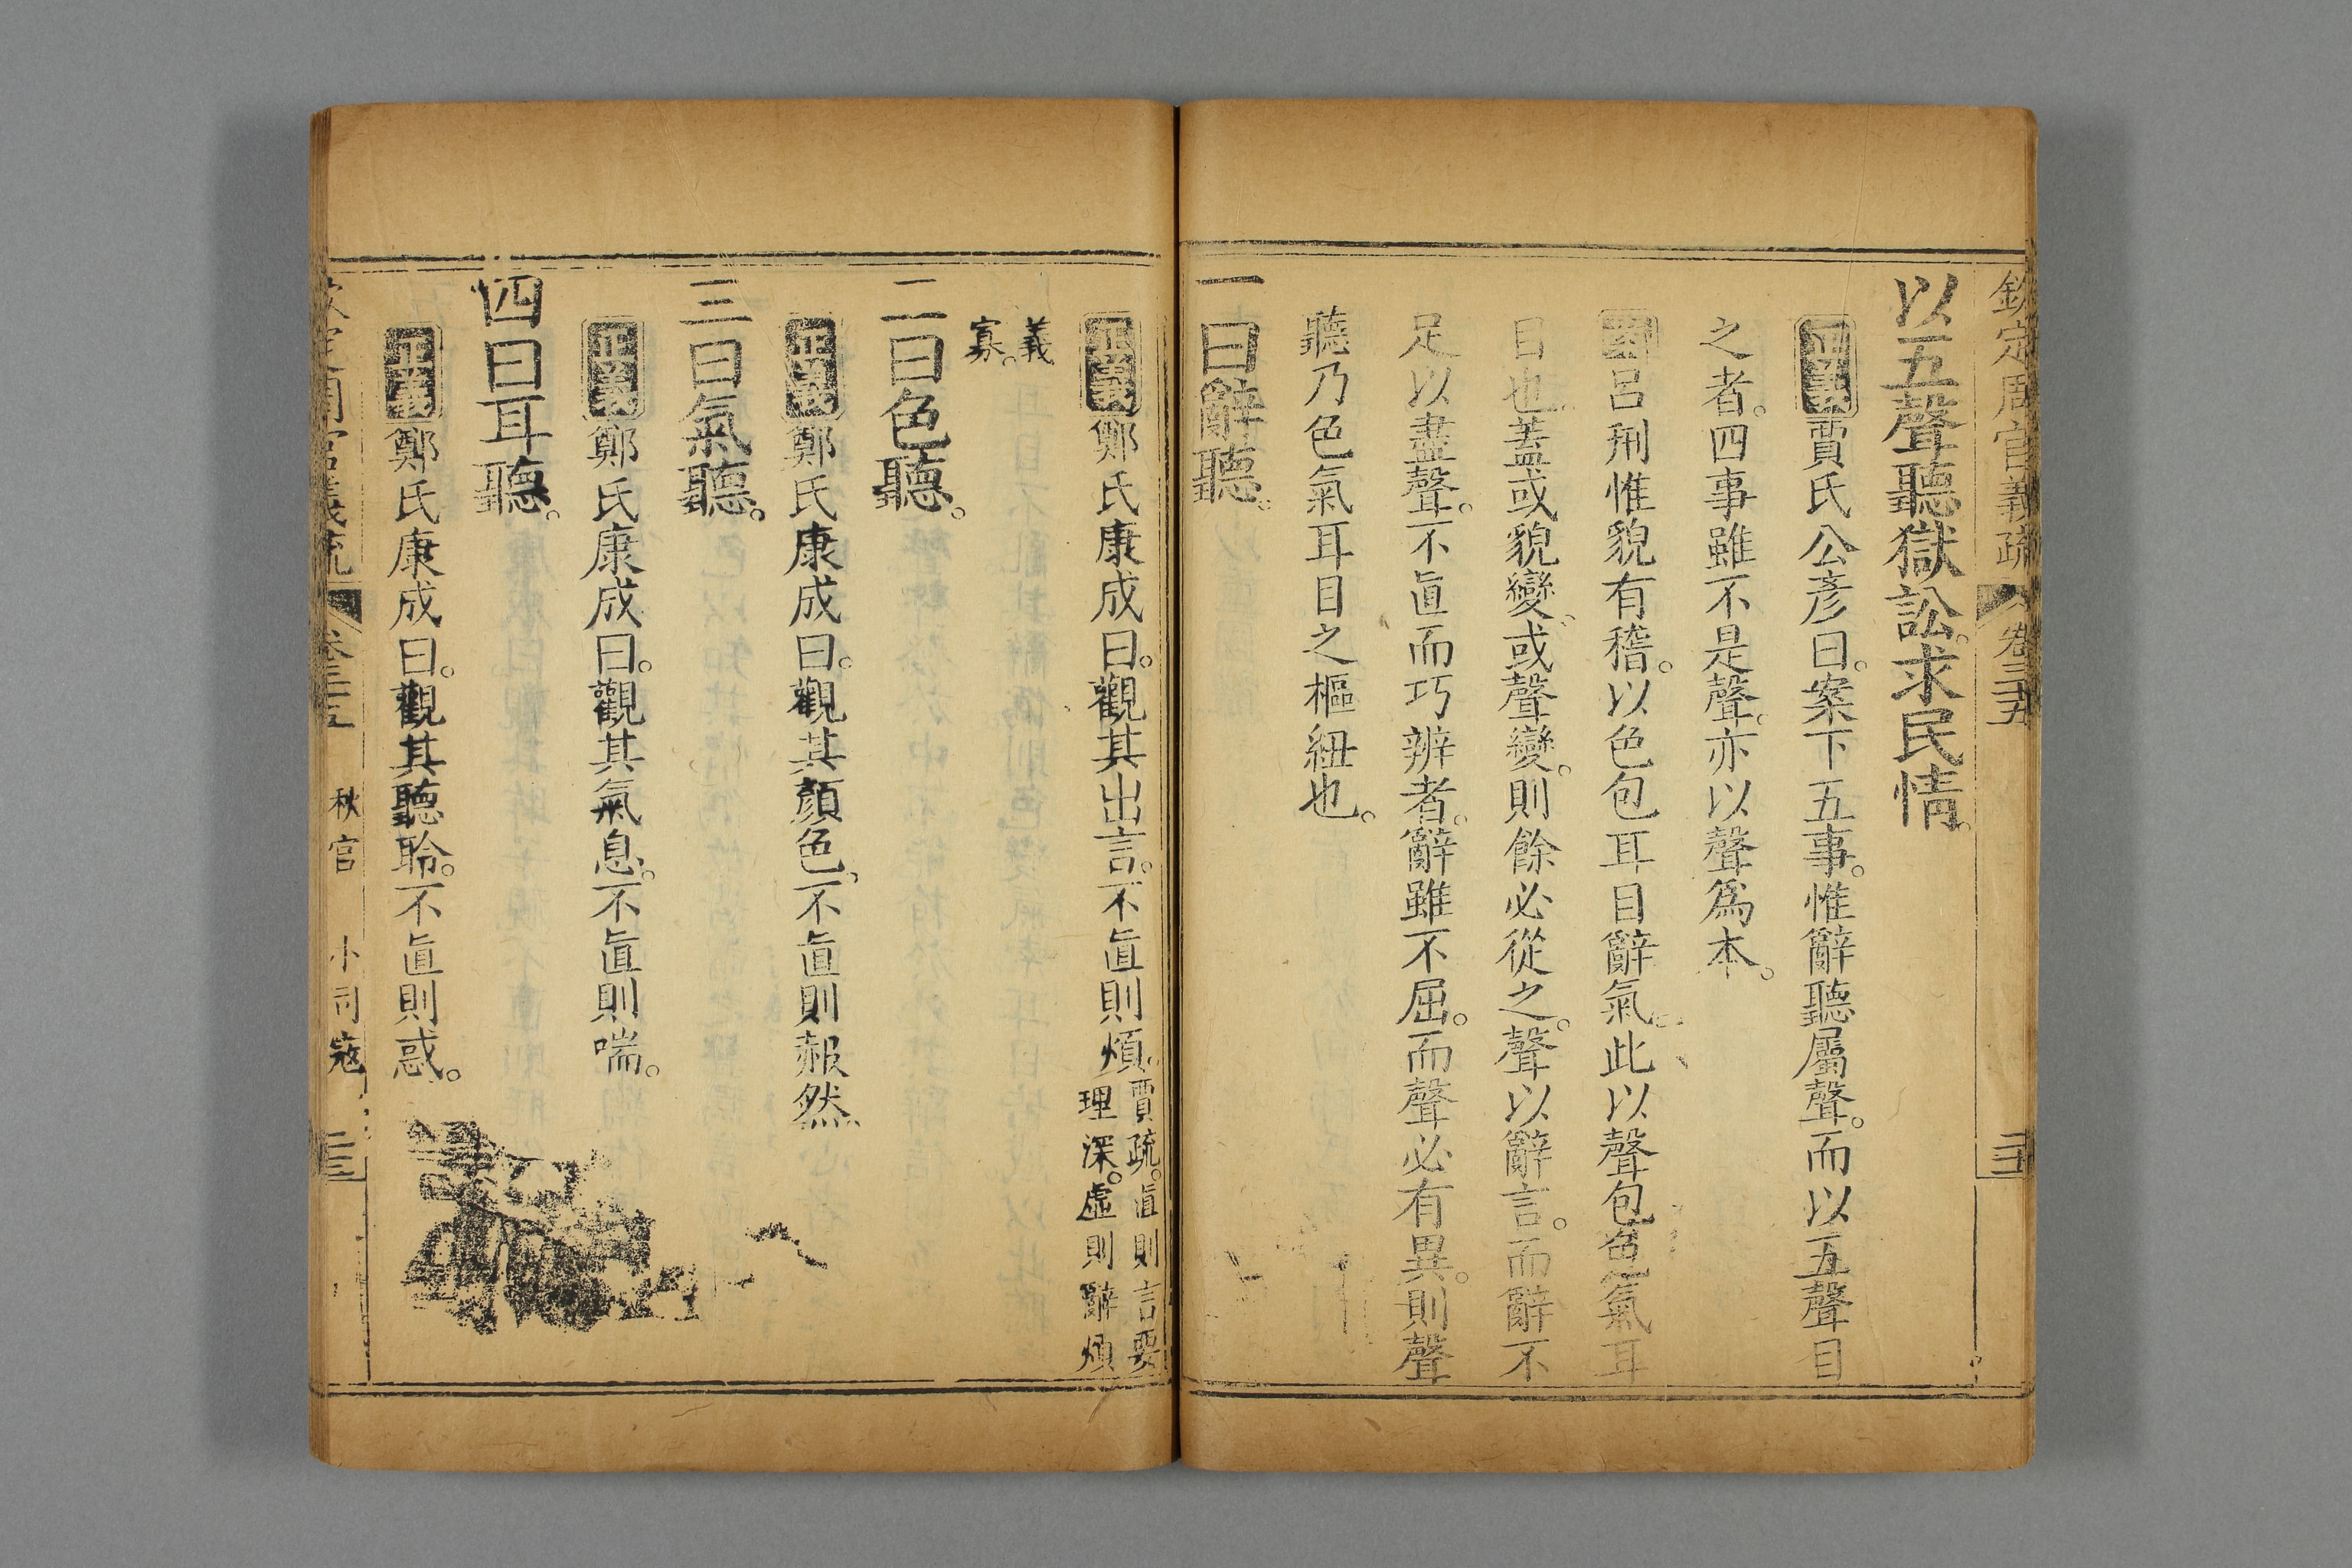 欽定周官義疏 卷三十五
以五聲聽獄訟。求民情。
正義賈氏公彥曰。案下五事。惟辭聽屬聲。而以五聲目
之者。四事雖不是聲。亦以聲爲本。
案呂刑惟貌有稽。以色包耳目辭氣。此以聲包色氣耳
目也。蓋或貌變。或聲變。則餘必從之。聲以辭言。而辭不
足以盡聲。不眞而巧辨者。辭雖不屈。而聲必有異。則聲
聽乃色氣耳目之樞紐也。
一曰辭聽。
正義鄭氏康成曰。觀其出言。不眞則煩。賈疏。眞則言要
理深。虛則辭煩
義
寡。
二曰色聽。
正義鄭氏康成曰。觀其顏色。不眞則赧然。
三曰氣聽。
正義鄭氏康成曰。觀其氣息。不眞則喘。
四曰耳聽。
正義鄭氏康成曰。觀其聽聆。不眞則惑。
定周官義疏 卷三十五 秋官 小司寇